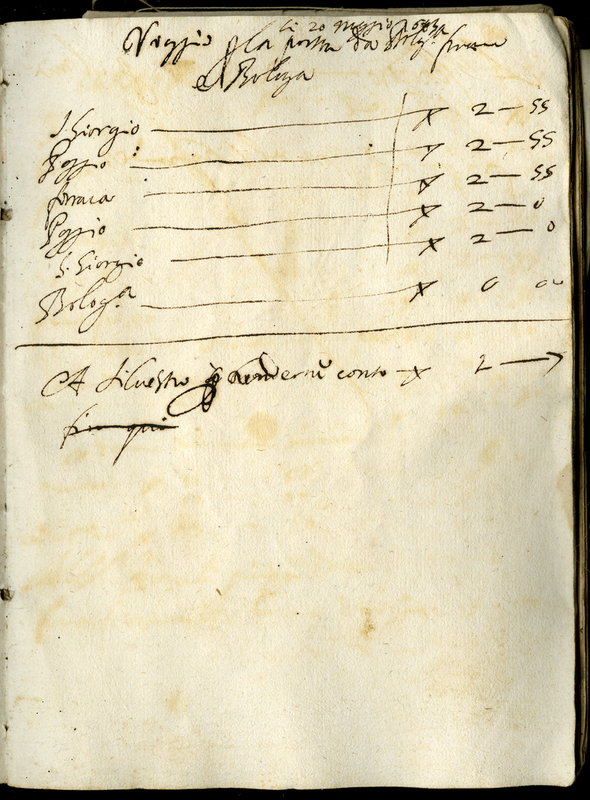 li 20 Maggio
Viaggio p la posta da
e Bologa
S. Giorgio x 2 — 55
Poggio x 2 — 55
ferrara x 2 — 55
Poggio x 2 — 0
S. Giorgio x 2 — 0
Bologa x 0 0
A Silvestro p renderne conto x 2 —
fin qui